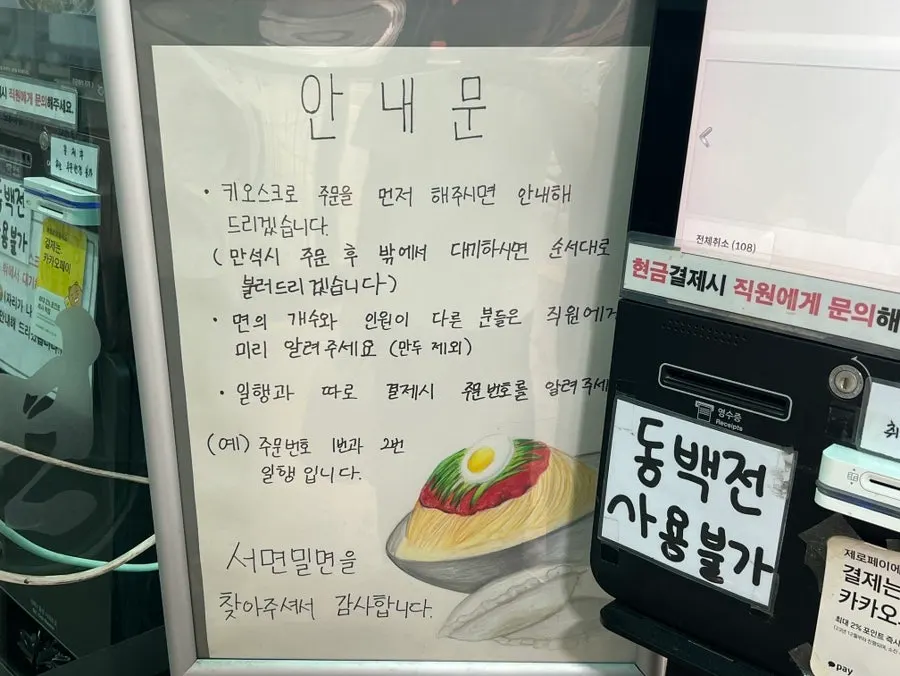 안내문
· 키오스크로 주문을 먼저 해주시면 안내해
드리겠습니다.
(만석시 주문 후 밖에서 대기하시면 순서대로
불러드리겠습니다)
· 면의 개수와 인원이 다른 분들은 직원에게
미리 알려주세요 (만두 제외)
· 일행과 따로 결제시 주문번호를 알려주세
(예) 주문번호 1번과 2번
일행 입니다.
서면밀면을
찾아주셔서 감사합니다.
전체취소 (108)
현금결제시 직원에게 문의해
영수증
Receipts
동백전
사용불가
제로페이에
결제는
카카오
최대 2% 포인트 즉시
pay
직원에게 문의해주세요.
백전
용불가
결제는
카카오페이